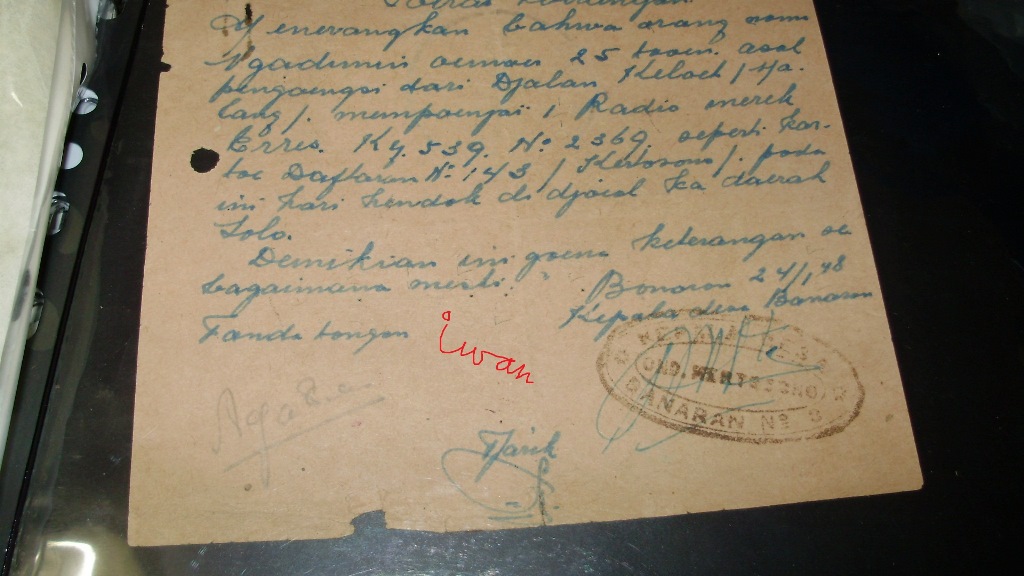 Menerangkan bahwa orang nama
Ngadimin oemoer 25 taoen. asal
pengoengsi dari Djalan Keloet / Ma-
lang /. mempoenjai 1 Radio merek
Erres. Ky. 539. No. 2369. seperti kar-
toe Daftaran No. 143 / Kertosono /. pada
ini hari hendak di djoeal ka daerah
Solo.
Demikian ini goena keterangan se
bagaimana mesti.
Banaran 24/1 '48
Kepala desa Banaran
Tanda tangan
iwan
KEPALA DESA
OND. KERTOSONO
BANARAN No 3
Tjarik